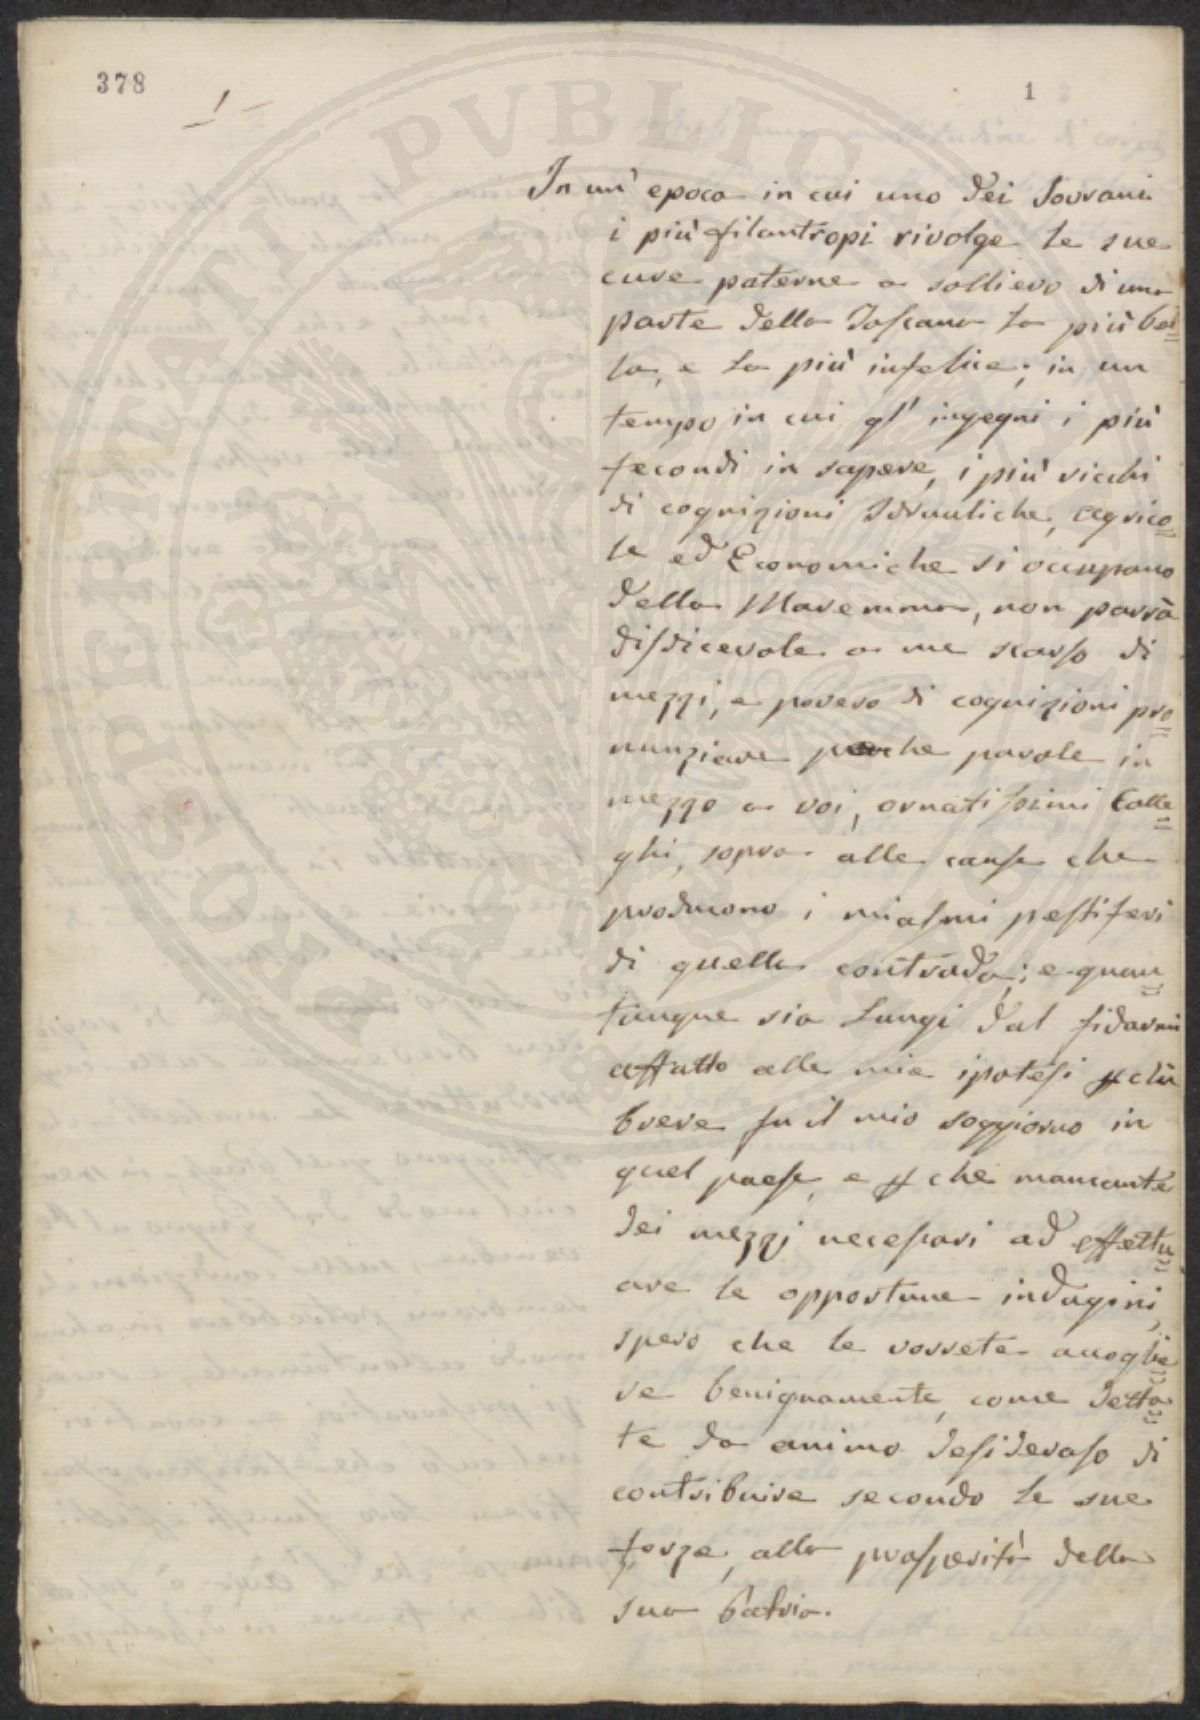 378
1
In un' epoca in cui uno dei Sovrani
i più filantropi rivolge le sue
cure paterne a sollievo di una
parte della Toscana la più bel=
la, e la più infelice; in un
tempo in cui gl' ingegni i più
fecondi in sapere, i più ricchi
di cognizioni Idrauliche, Agrico=
le ed Economiche si occupano
della Maremma, non parrà
disdicevole a me scarso di
mezzi, e povero di cognizioni pro=
nunziare poche parole in
mezzo a voi, ornatissimi Colle=
ghi, sopra alle cause che
producono i miasmi pestiferi
di quella contrada; e quan=
tunque sia Lungi dal fidarmi
affatto alle mie ipotesi
breve fu il mio soggiorno in
quel paese, e che mancante
dei mezzi necessari ad effettu=
are le opportune indagini,
spero che le vorrete accoglie=
re benignamente, come detta=
te da animo desideroso di
contribuire secondo le sue
forze, alla prosperità della
sua Patria.
HOSPERITATI PVBLICAE